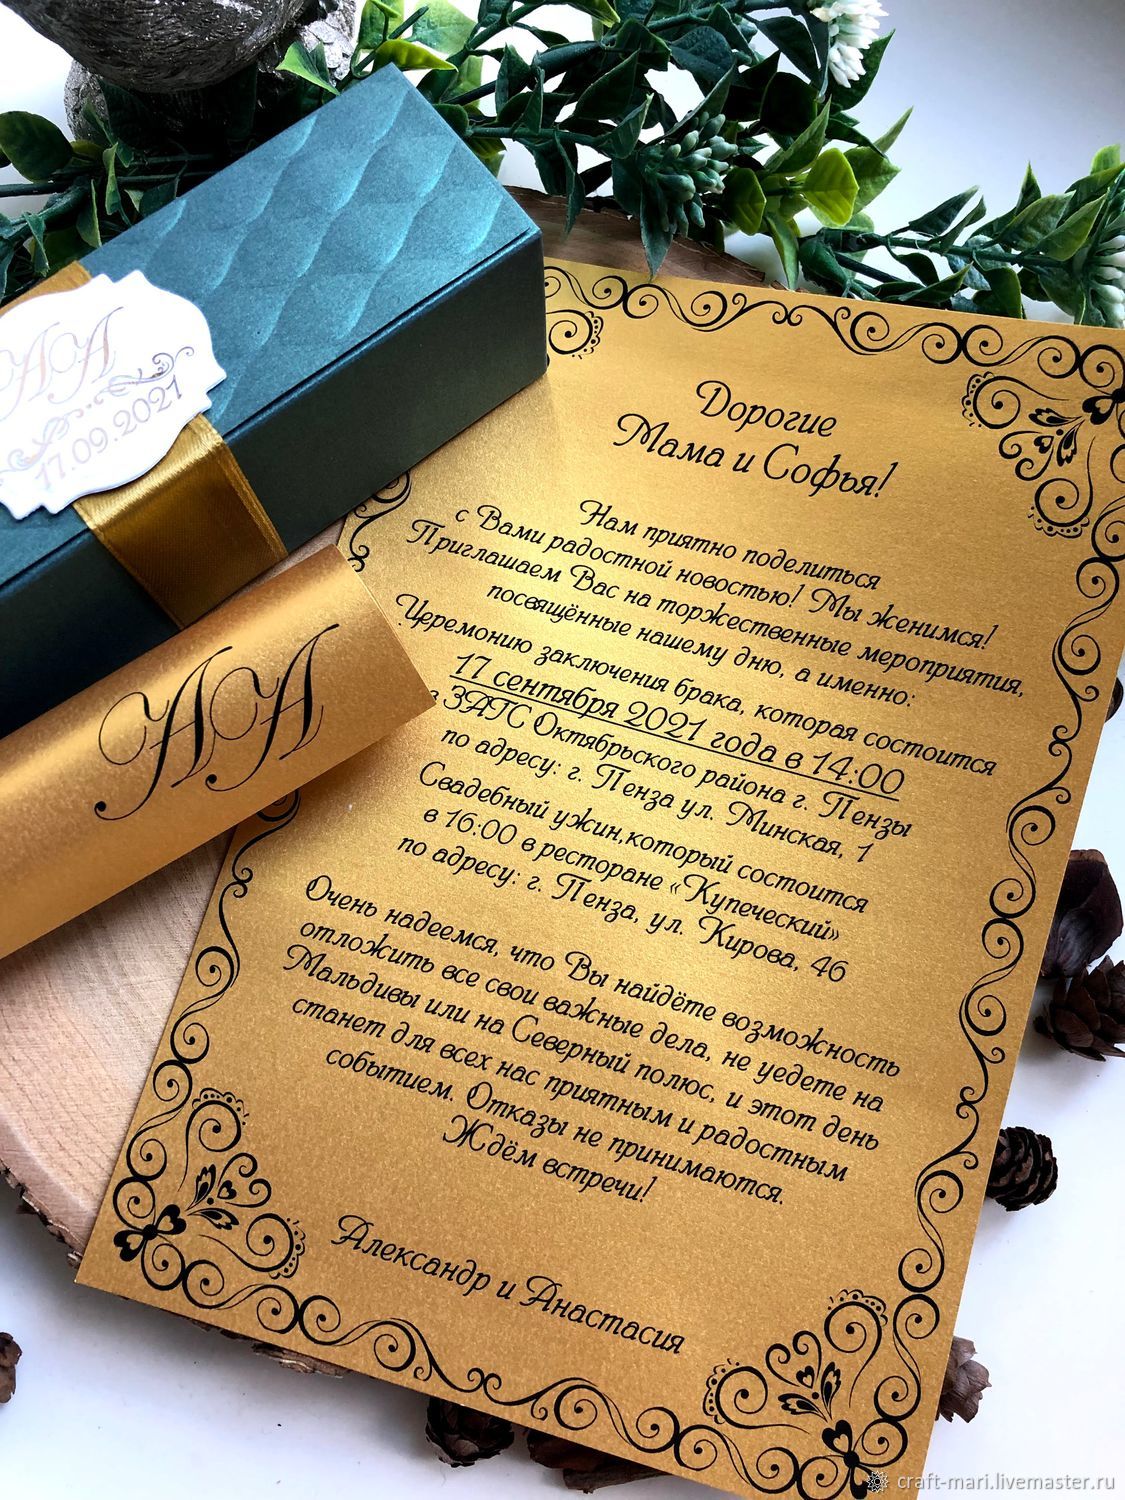 АА
17.09.2021
АА
Дорогие
Мама и Софья!
Нам приятно поделиться
с Вами радостной новостью! Мы женимся!
Приглашаем Вас на торжественные мероприятия,
посвящённые нашему дню, а именно:
Церемонию заключения брака, которая состоится
17 сентября 2021 года в 14:00
в ЗАГС Октябрьского района г. Пензы
по адресу: г. Пенза ул. Минская, 1
Свадебный ужин,который состоится
в 16:00 в ресторане «Купеческий»
по адресу: г. Пенза, ул. Кирова, 46
Очень надеемся, что Вы найдёте возможность
отложить все свои важные дела, не уедете на
Мальдивы или на Северный полюс, и этот день
станет для всех нас приятным и радостным
событием. Отказы не принимаются.
Ждём встречи!
Александр и Анастасия
craft-mari.livemaster.ru